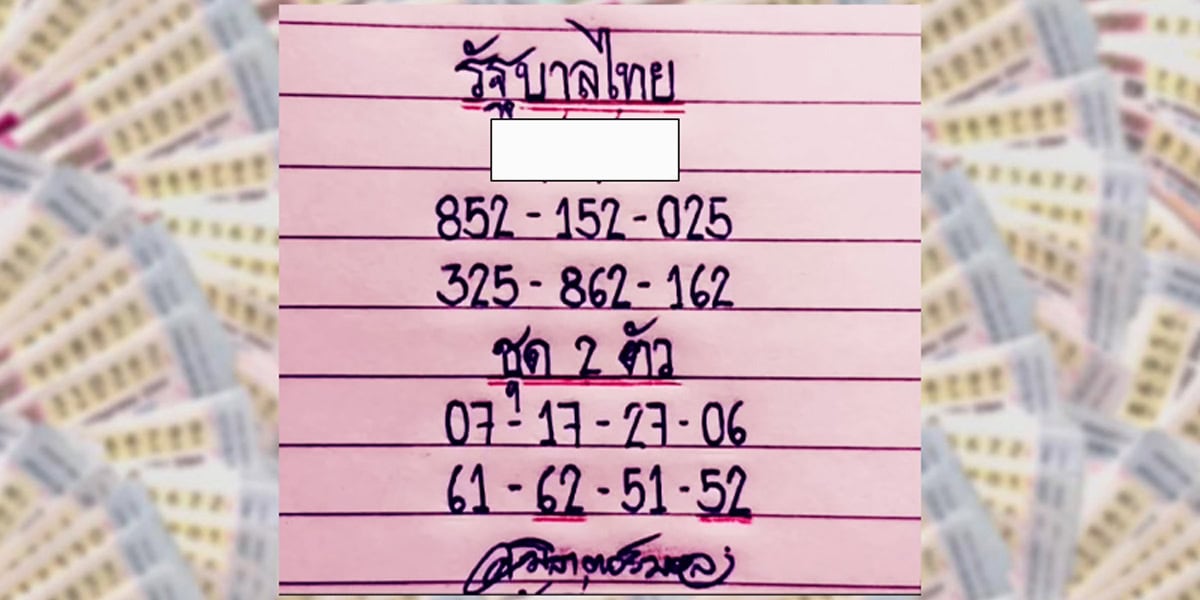 รัฐบาลไทย
852 - 152 - 025
325 - 862 - 162
ชุด 2 ตัว
07 - 17 - 27 - 06
61 - 62 - 51 - 52